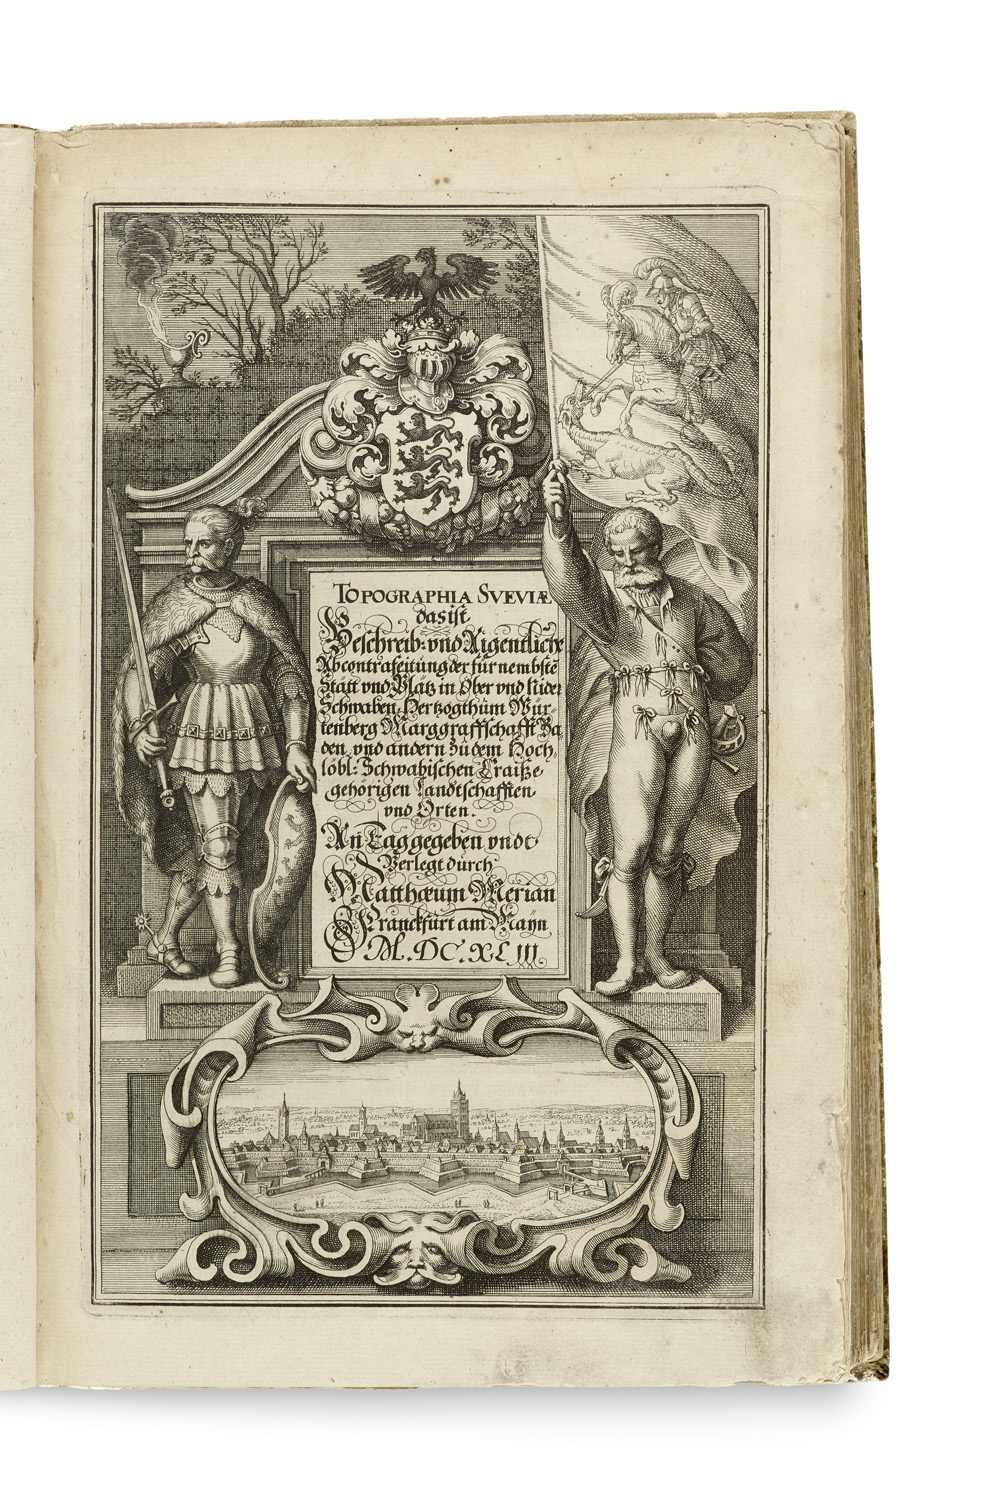 TOPOGRAPHIA SVEVIÆ
das ist
Beschreib: vnd Aigentliche
Abcontrafeitung der fürnembstē
Stätt vnd Plätz in Ober vnd Nider
Schwaben, Hertzogthum Wür-
tenberg Marggraffschafft Ba
den vnd andern zu dem Hoch
löbl: Schwabischen Craiße
gehörigen Landtschafften
vnd Orten.
An Tag gegeben vndt
Verlegt durch
Matthæum Merian
Franckfurt am Mayn
M.DC.XLIII